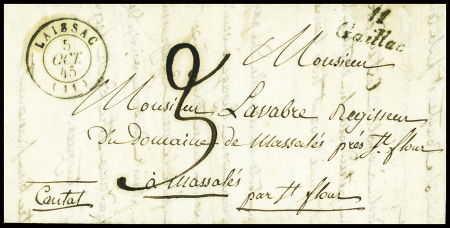 LAISSAC
5
OCT.
45
(11)
11
Gaillac
3
Monsieur
Monsieur Lavabre Regisseur
Du domaine de Massalés prés St. flour
à Massalés
Cantal par St flour